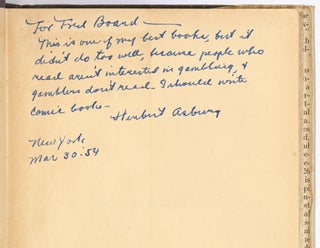 For Fred Board —
This is one of my best books, but it
didn't do too well, because people who
read aren't interested in gambling, &
gamblers don't read. I should write
comic books —
Herbert Asbury
New York
Mar 30 · 54